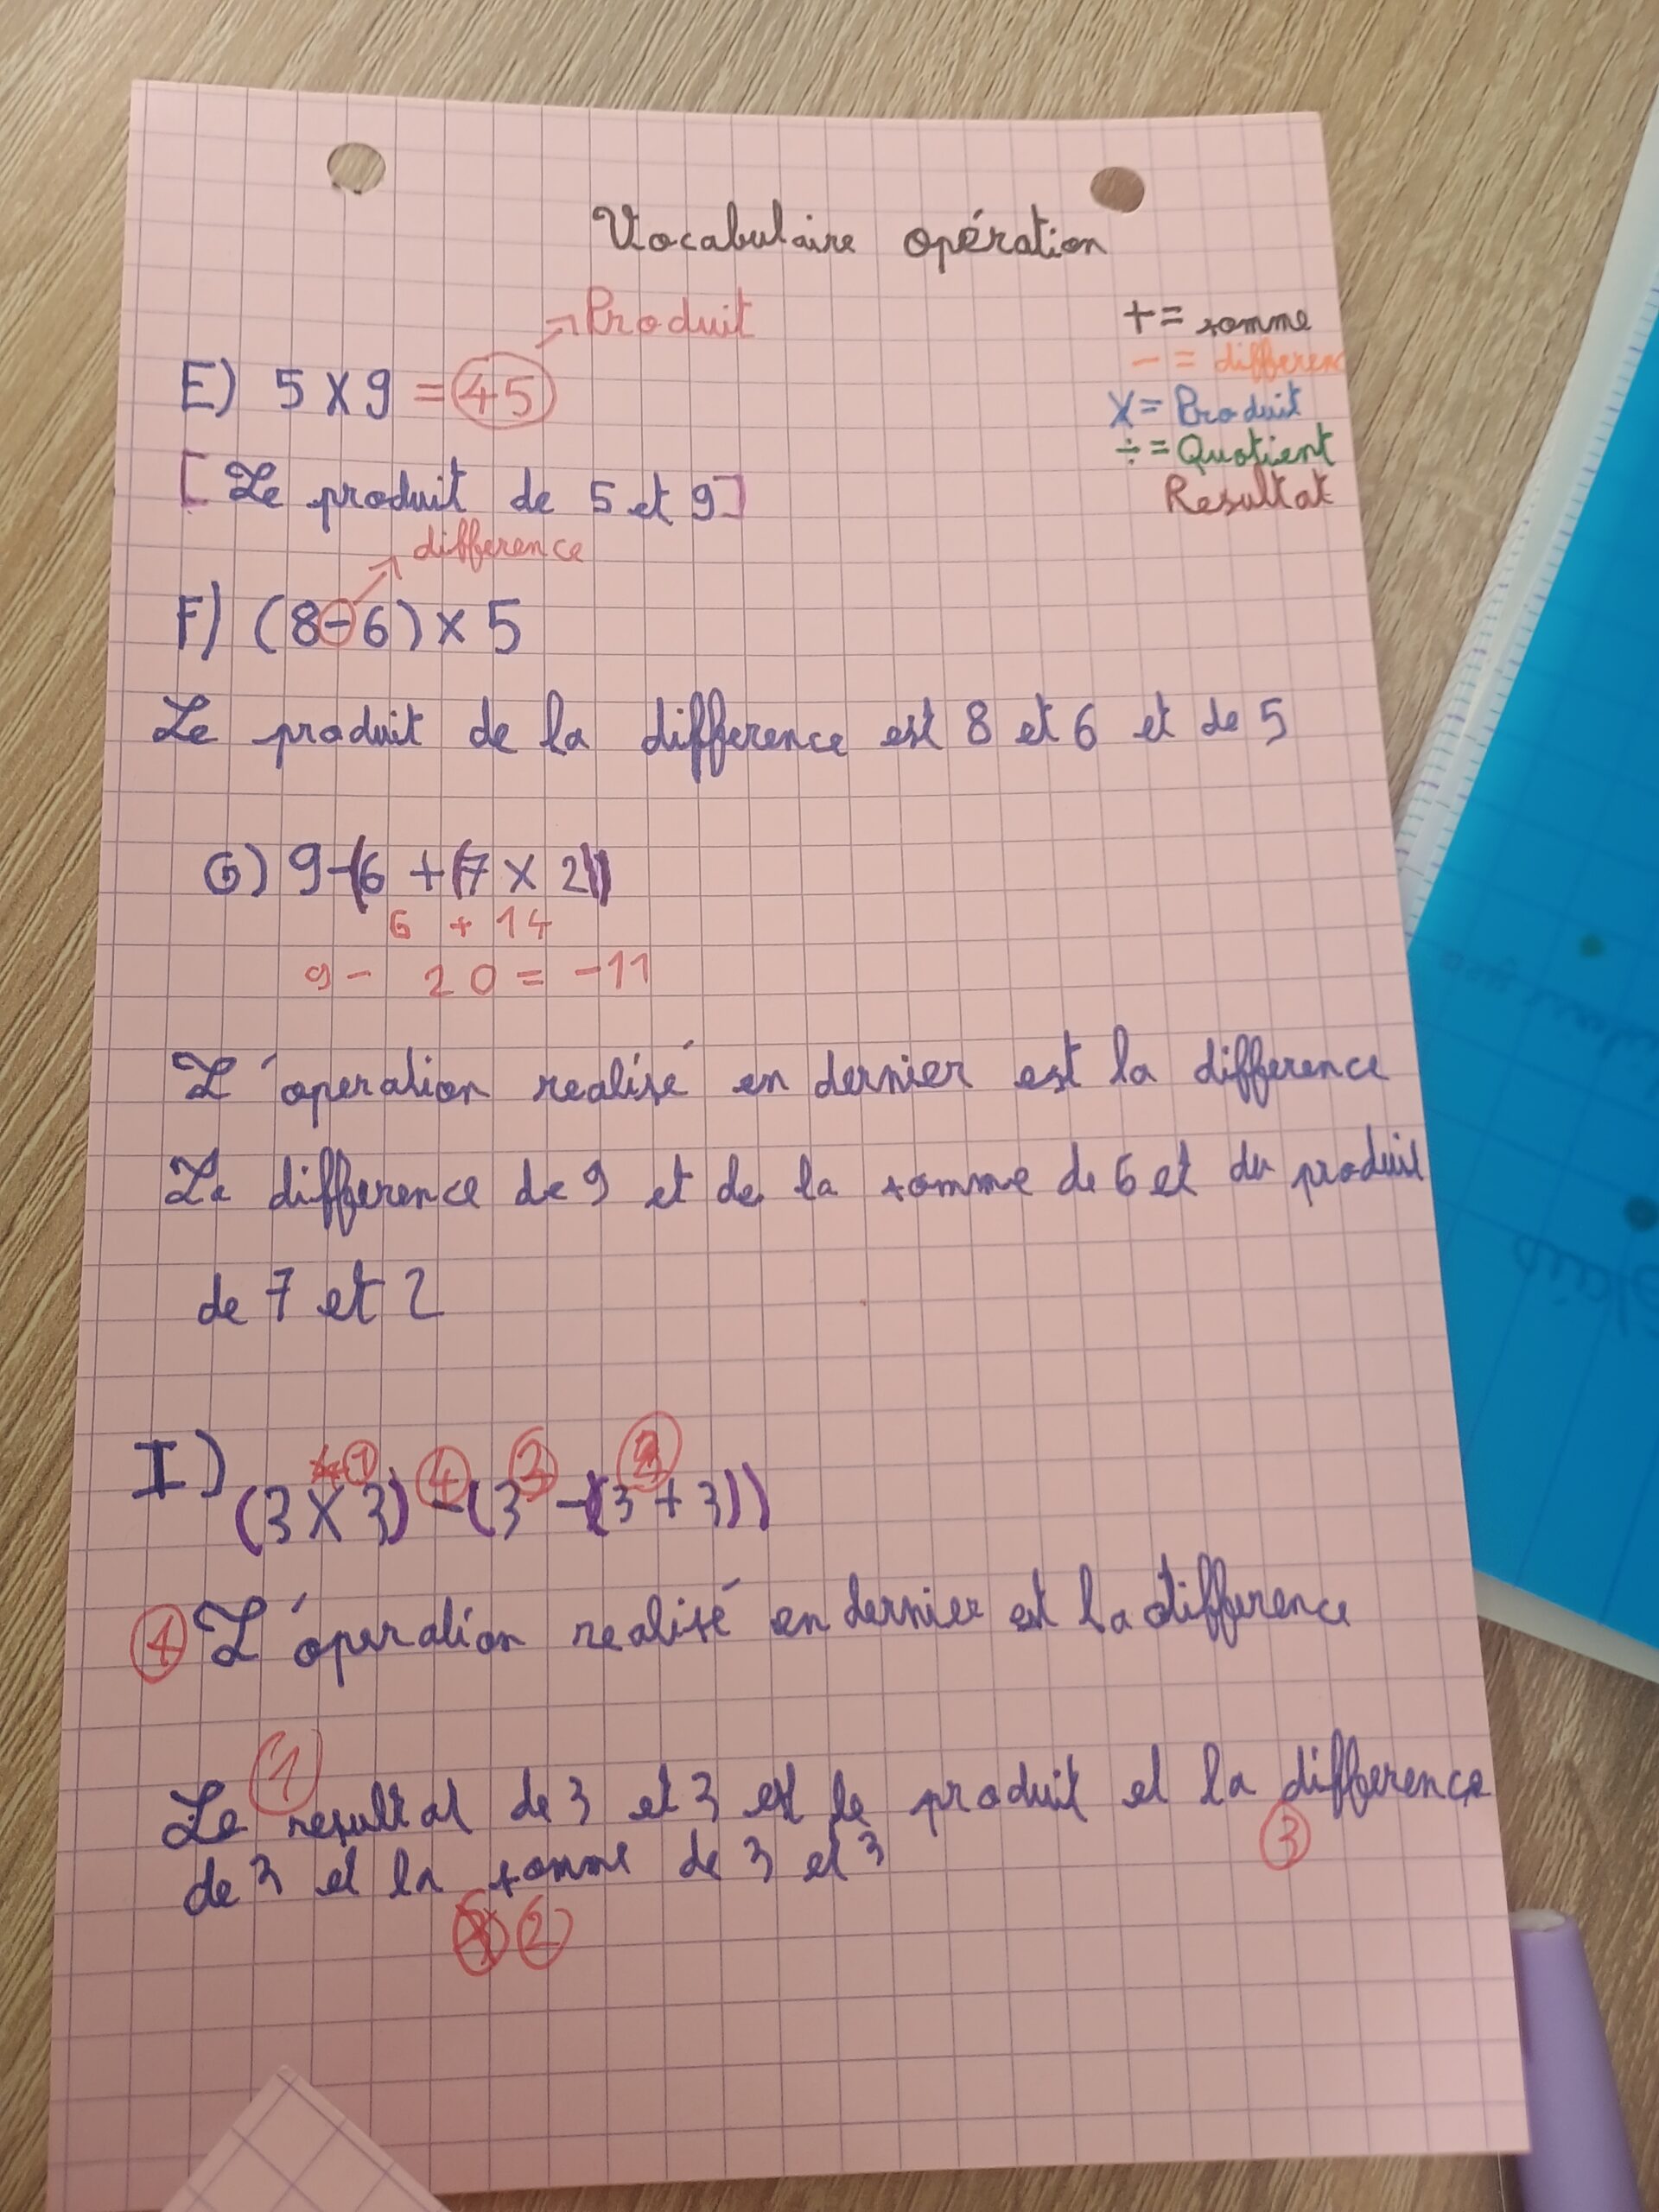 Vocabulaire opération
+ = somme
- = differenc
X = Produit
÷ = Quotient
Resultat
Produit
E) 5 X 9 = 45
[Le produit de 5 et 9]
difference
F) (8-6) x 5
Le produit de la difference est 8 et 6 et de 5
G) 9-(6 + (7 x 2))
6 + 14
9 - 20 = -11
L'operation realisé en dernier est la difference
Le difference de 9 et de la somme de 6 et du produit
de 7 et 2
1 4 3 2
I) (3 X 3) - (3 - (3 + 3))
4 L'operation realisé en dernier est la difference
1
Le resultat de 3 et 3 est le produit et la difference
3
de 3 et la somme de 3 et 3
2